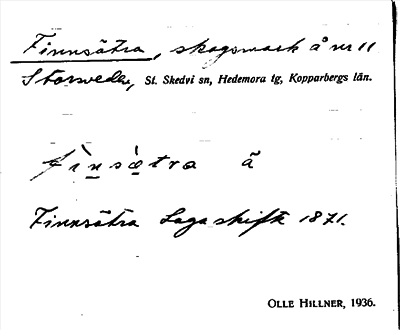 Finnsätra, skogsmark å nr 11
Storsveden, St. Skedvi sn, Hedemora tg, Kopparbergs län.
fìnsætra ä
Finnsätra Laga skifte 1871.
OLLE HILLNER, 1936.